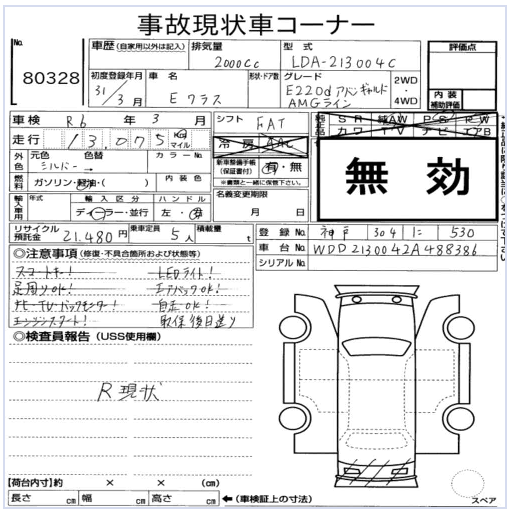 事故現状車コーナー
No. 80328
車歴 (自家用以外は記入) 排気量 2000cc 型式 LDA-213004C 評価点
初度登録年月 31/3月 車名 Eクラス 形状・ドア数 グレード E220d アバンギャルド AMGライン 2WD・4WD 内装補助評価
車検 R6年 3月 シフト FAT
走行 13,075 Km マイル 冷房 AAC
外色 元色 シルバー 色替 → カラーNo. 新車整備手帳(保証書付) 有・無 ※書類と一緒に保管下さい。
燃料 ガソリン・軽油・( ) 内装色 名義変更期限 月 日
輸入車用 年式 輸入区分 ディーラー・並行 ハンドル 左・右
無効
リサイクル預託金 21,480円 乗車定員 5人 積載量 t
登録No. 神戸 304 に 530
車台No. WDD2130042A488386
シリアルNo.
◎注意事項 (修復・不具合箇所および状態等)
スマートキー! LEDライト!
足周りOK! エアバックOK!
ナビ・TV・バックモニター! 自走OK!
エンジンスタート! 取保後日送り
◎検査員報告 (USS使用欄)
R現状
【荷台内寸】約 × × (cm)
長さ cm 幅 cm 高さ cm ←(車検証上の寸法)
スペア